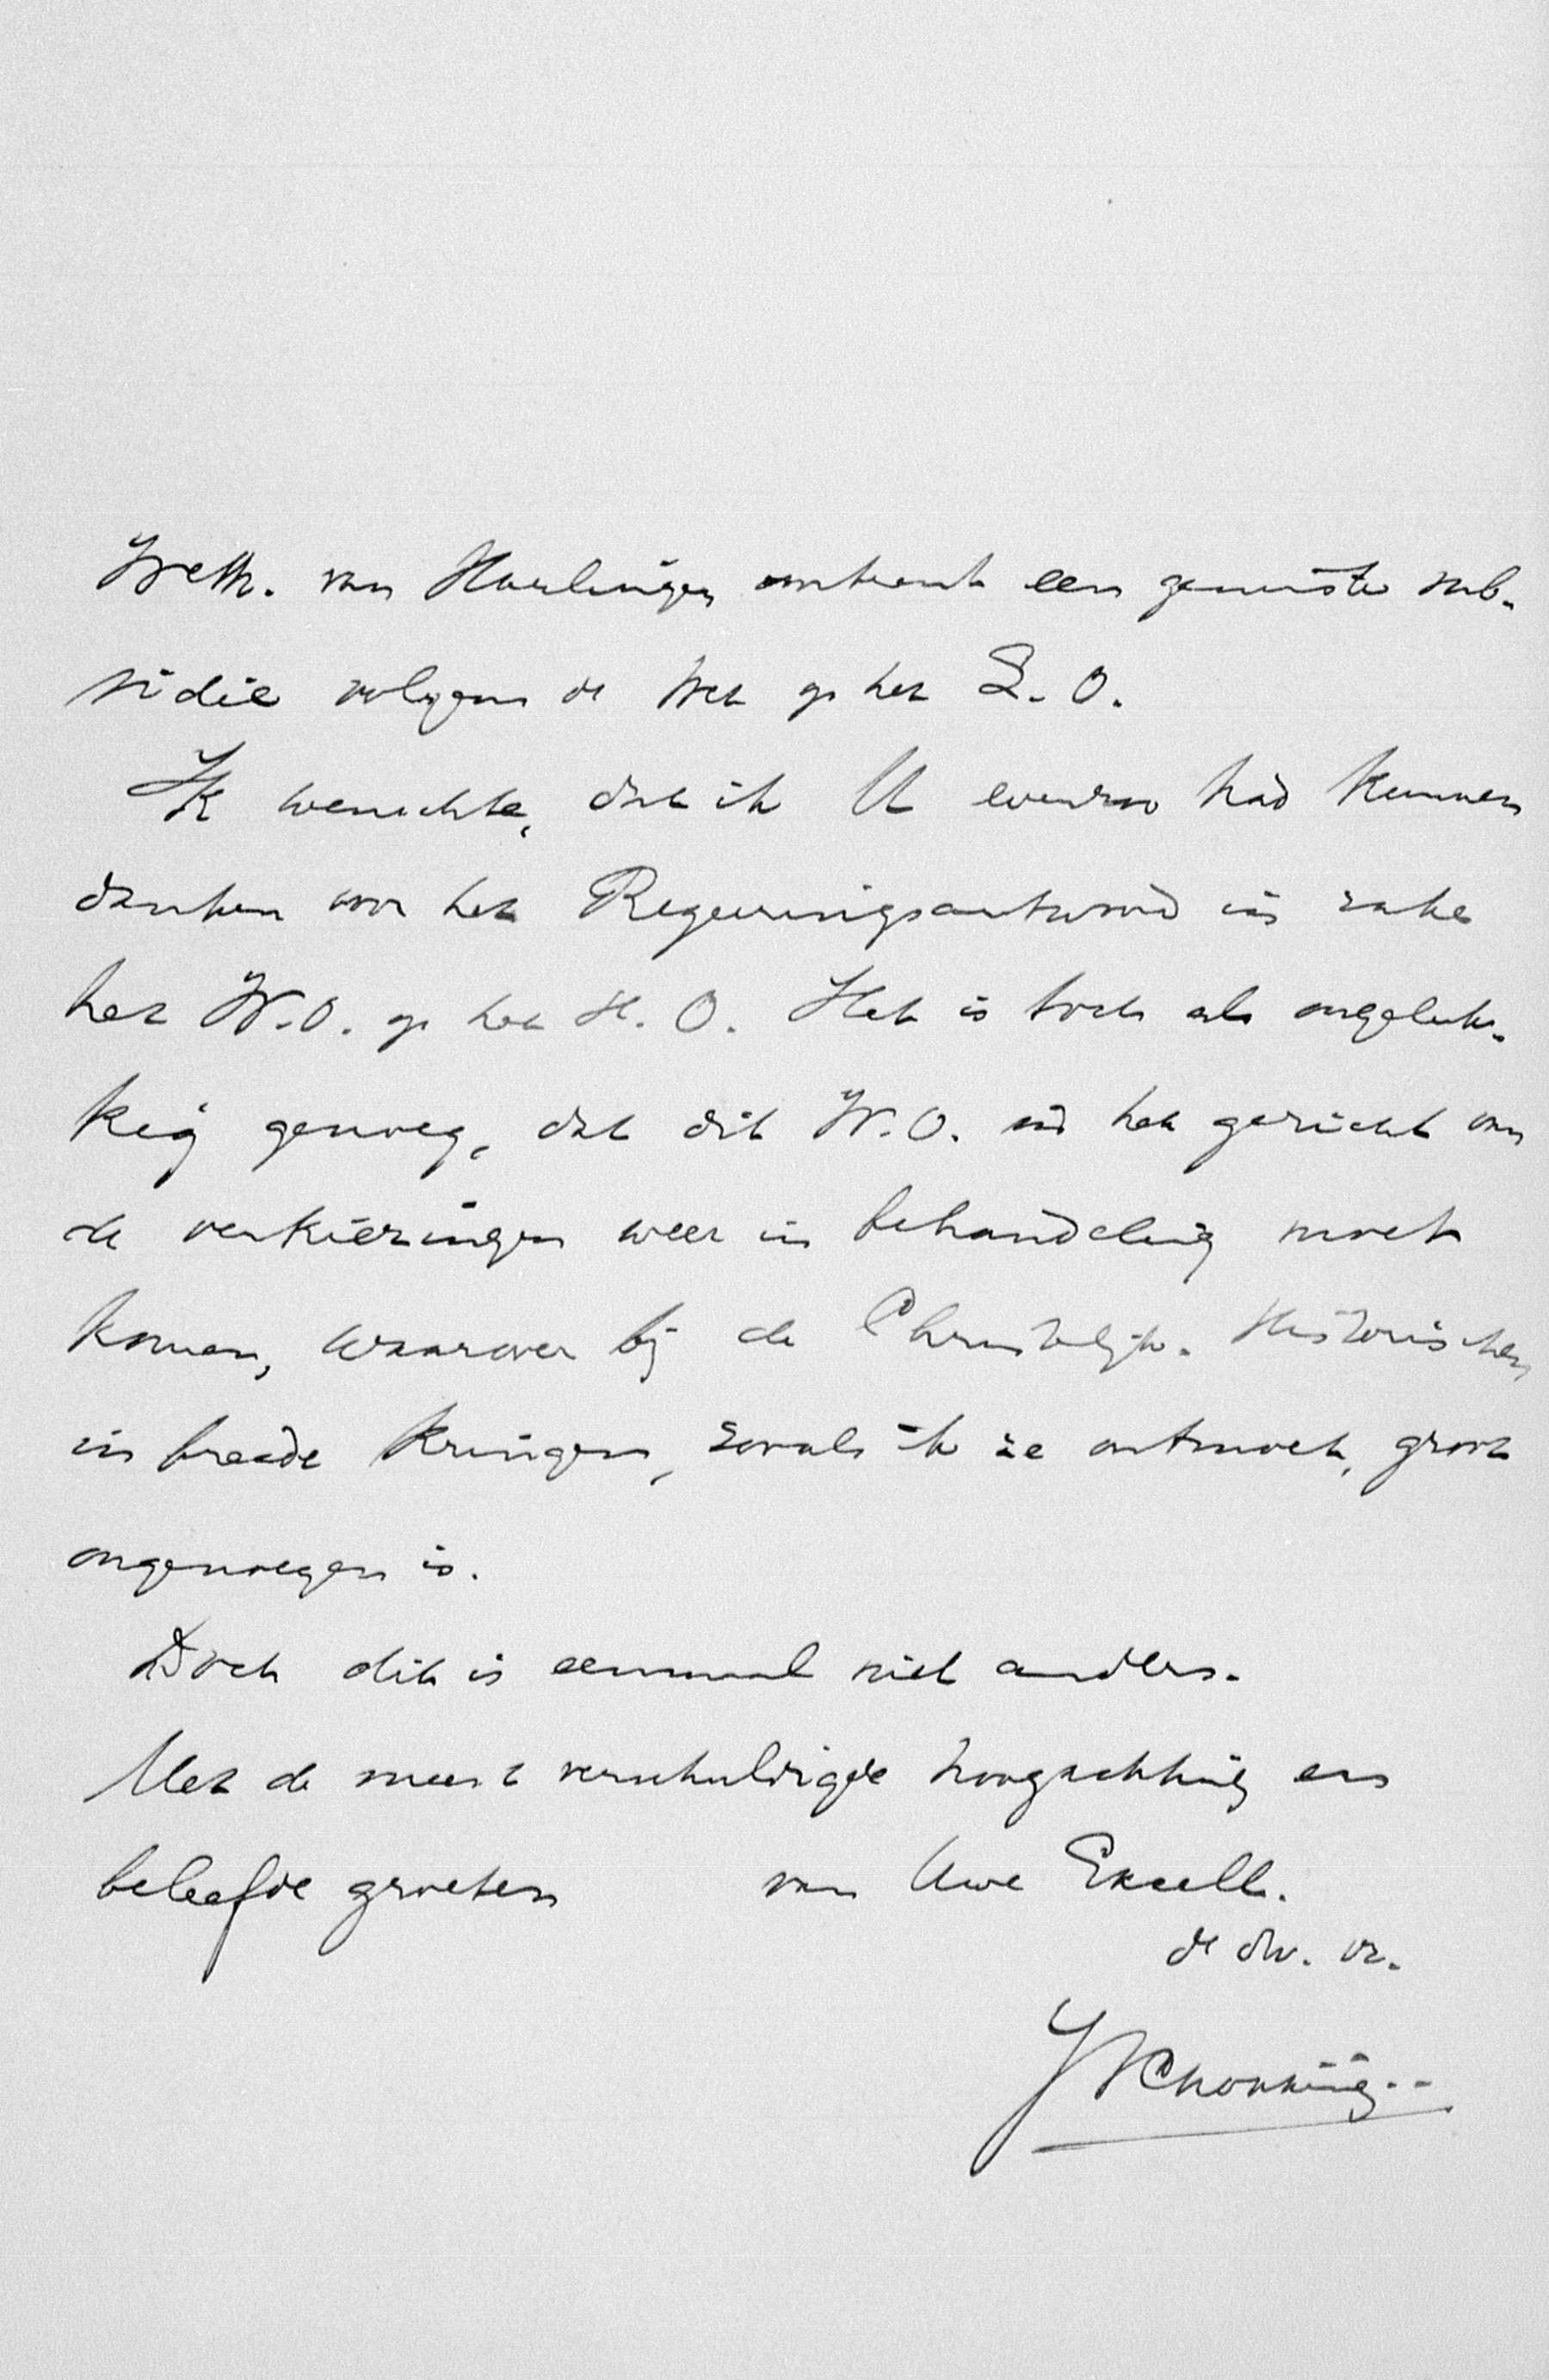 Weth. van Harlingen omtrent een gewenste sub-
sidie volgens de Wet op het L.O.
Ik wenschte, dat ik U evenzoo had kunnen
danken voor het Regeeringsantwoord in zake
het W.O. op het H.O. Het is toch als ongeluk-
kig genoeg, dat dit W.O. in het gezicht van
de verkiezingen weer in behandeling moet
komen, waarover bij de Christelijk-Historischen
in breede kringen, zooals ik ze ontmoet, groot
ongenoegen is.
Doch dit is eenmaal niet anders.
Met de meest verschuldigde hoogachting en
beleefde groeten van Uwe Excell.
de dw. dr.
J Schokking